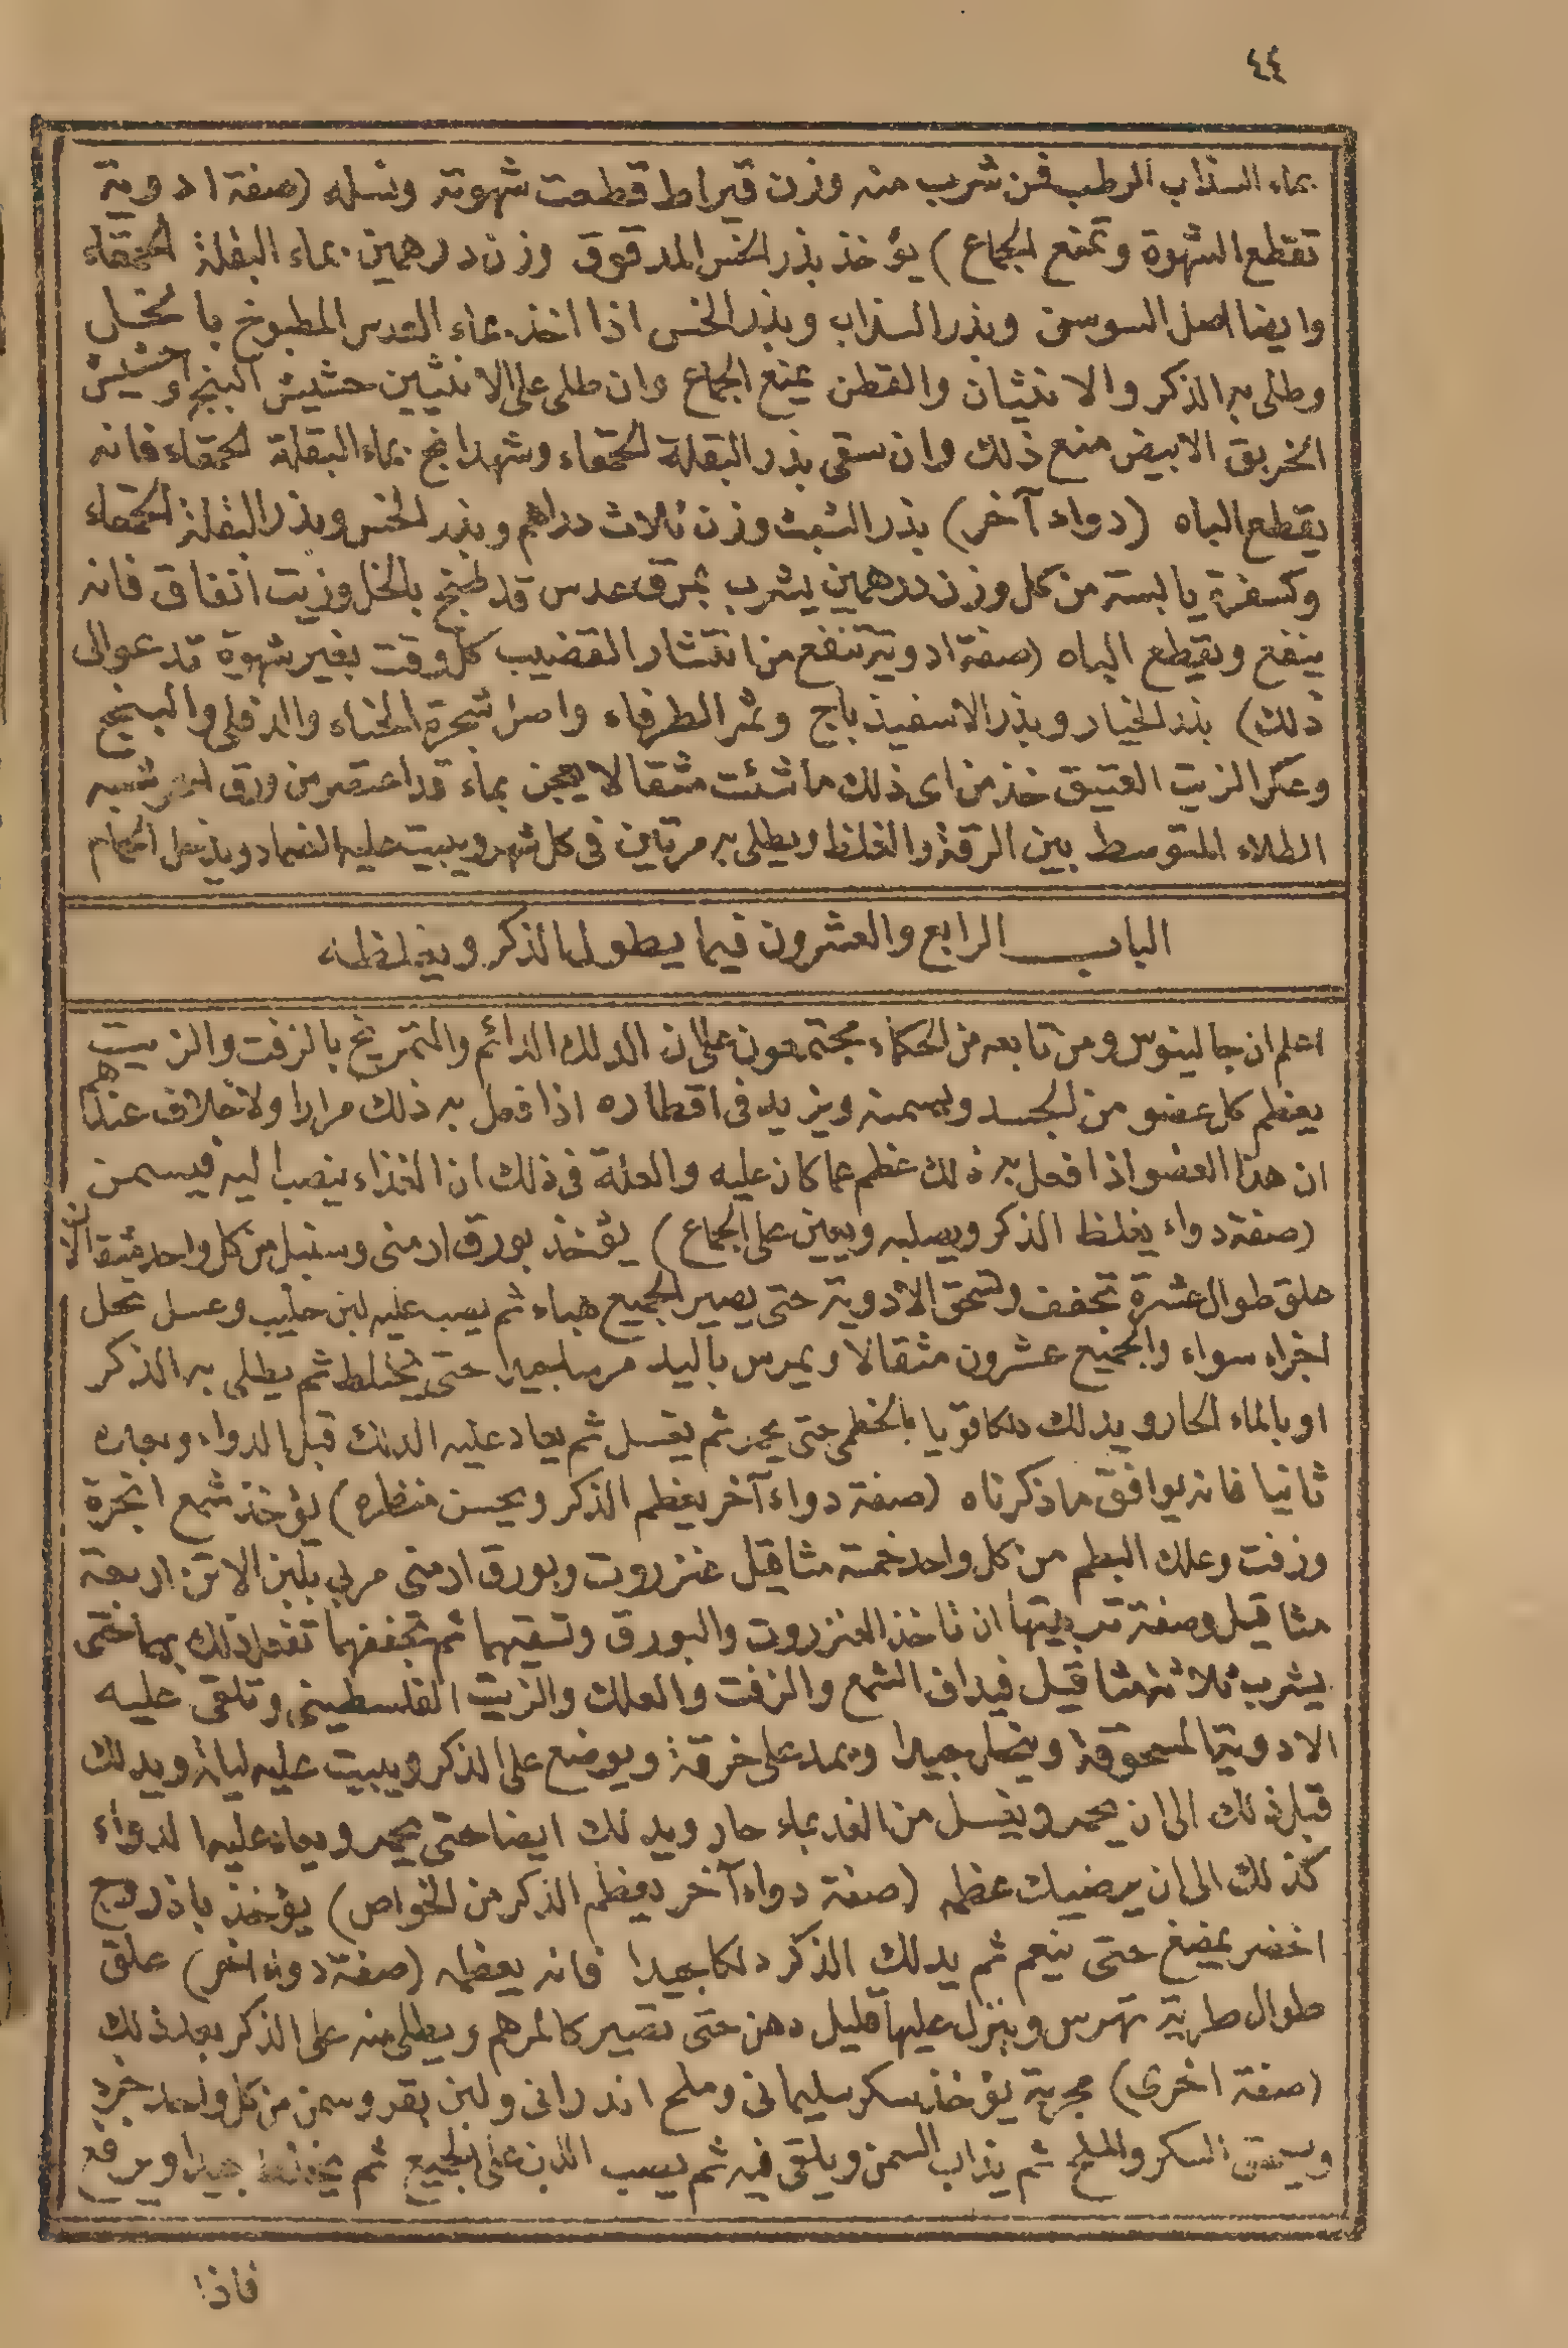 ٤٤
بماء السذاب الرطب فمن شرب منه وزن قيراط قطعت شهوته ونسله (صفة ادوية
تقطع الشهوة وتمنع الجماع) يؤخذ بذر الخس المدقوق وزن درهمين بماء البقلة الحمقاء
وايضا اصل السوسن وبذر السذاب وبذر الخس اذا اخذ بماء العدس المطبوخ بالخل
وطلى به الذكر والانثيان والقطن يمنع الجماع وان طلى على الانثيين حشيش البنج او حشيش
الخربق الابيض منع ذلك وان سقى بذر البقلة الحمقاء وشهدانج بماء البقلة الحمقاء فانه
يقطع الباه (دواء آخر) بذر الشبث وزن ثلاث دراهم وبذر الخس وبذر البقلة الحمقاء
وكسفرة يابسة من كل وزن درهمين يشرب بمرق عدس قد طبخ بالخل وزيت انفاق فانه
ينفع ويقطع الباه (صفة ادوية تنفع من انتشار القضيب كل وقت بغير شهوة تدعو الى
ذلك) بذر الخيار وبذر الاسفيذباج وثمر الطرفاء واصل شجرة الحناء والدفلى والبنج
وعكر الزيت العتيق خذ من اى ذلك ما شئت مثقالا يعجن بماء قد اعتصر من ورق شبه
الطلاء المتوسط بين الرقة والغلظ ويطلى به مرتين فى كل شهر ويبيت عليه الضماد ويدخل الحمام
الباب الرابع والعشرون فيما يطول الذكر ويغلظه
اعلم ان جالينوس ومن تابعه من الحكماء مجتمعون على ان الدلك الدائم والتمريخ بالزفت والزيت
يعظم كل عضو من الجسد ويسمنه ويزيد فى اقطاره اذا فعل به ذلك مرارا ولا خلاف عندهم
ان هذا العضو اذا فعل به ذلك عظم عما كان عليه والعلة فى ذلك ان الغذاء ينصب اليه فيسمن
(صفة دواء يغلظ الذكر ويصلبه ويعين على الجماع) يؤخذ بورق ارمنى وسنبل من كل واحد مثقالان
علق طوال عشرة تجفف وتسحق الادوية حتى يصير الجميع هباء ثم يصب عليه لبن حليب وعسل نحل
اجزاء سواء والجميع عشرون مثقالا ويمرس باليد مرسا جيدا حتى يختلط ثم يطلى به الذكر
او بالماء الحار ويدلك دلكا قويا بالخطمى حتى يحمر ثم يغسل ثم يعاد عليه الدلك قبل الدواء وبعده
ثانيا فانه يوافق ما ذكرناه (صفة دواء آخر يعظم الذكر ويحسن منظره) يؤخذ شمع انجرة
وزفت وعلك البطم من كل واحد خمسة مثاقيل عنزروت وبورق ارمنى مربى بلبن الاتن اربعة
مثاقيل وصفة تربيتها ان تاخذ العنزروت والبورق وتسقيهما ثم تجففهما تفعل ذلك بهما حتى
يشرب ثلاثة مثاقيل فيداف الشمع والزفت والعلك والزيت الفلسطينى وتلقى عليه
الادوية المسحوقة ويخلط جيدا ويمد على خرقة ويوضع على الذكر ويبيت عليه ليلة ويدلك
قبل ذلك الى ان يحمر ويغسل من الغد بماء حار ويدلك ايضا حتى يحمر ويعاد عليه الدواء
كذلك الى ان يرضيك عظمه (صفة دواء آخر يعظم الذكر من الخواص) يؤخذ باذروج
اخضر يمضغ حتى ينعم ثم يدلك الذكر دلكا جيدا فانه يعظمه (صفة دواء آخر) علق
طوال طرية تهرس وينزل عليها قليل دهن حتى تصير كالمرهم ويطلى منه على الذكر بعد ذلك
(صفة اخرى) مجربة يؤخذ سكر سليمانى وملح اندرانى ولبن بقر وسمن من كل واحد جزء
ويسحق السكر والملح ثم يذاب السمن ويلقى فيه ثم يصب اللبن على الجميع ثم يخلط جيدا ويرفع
فاذا